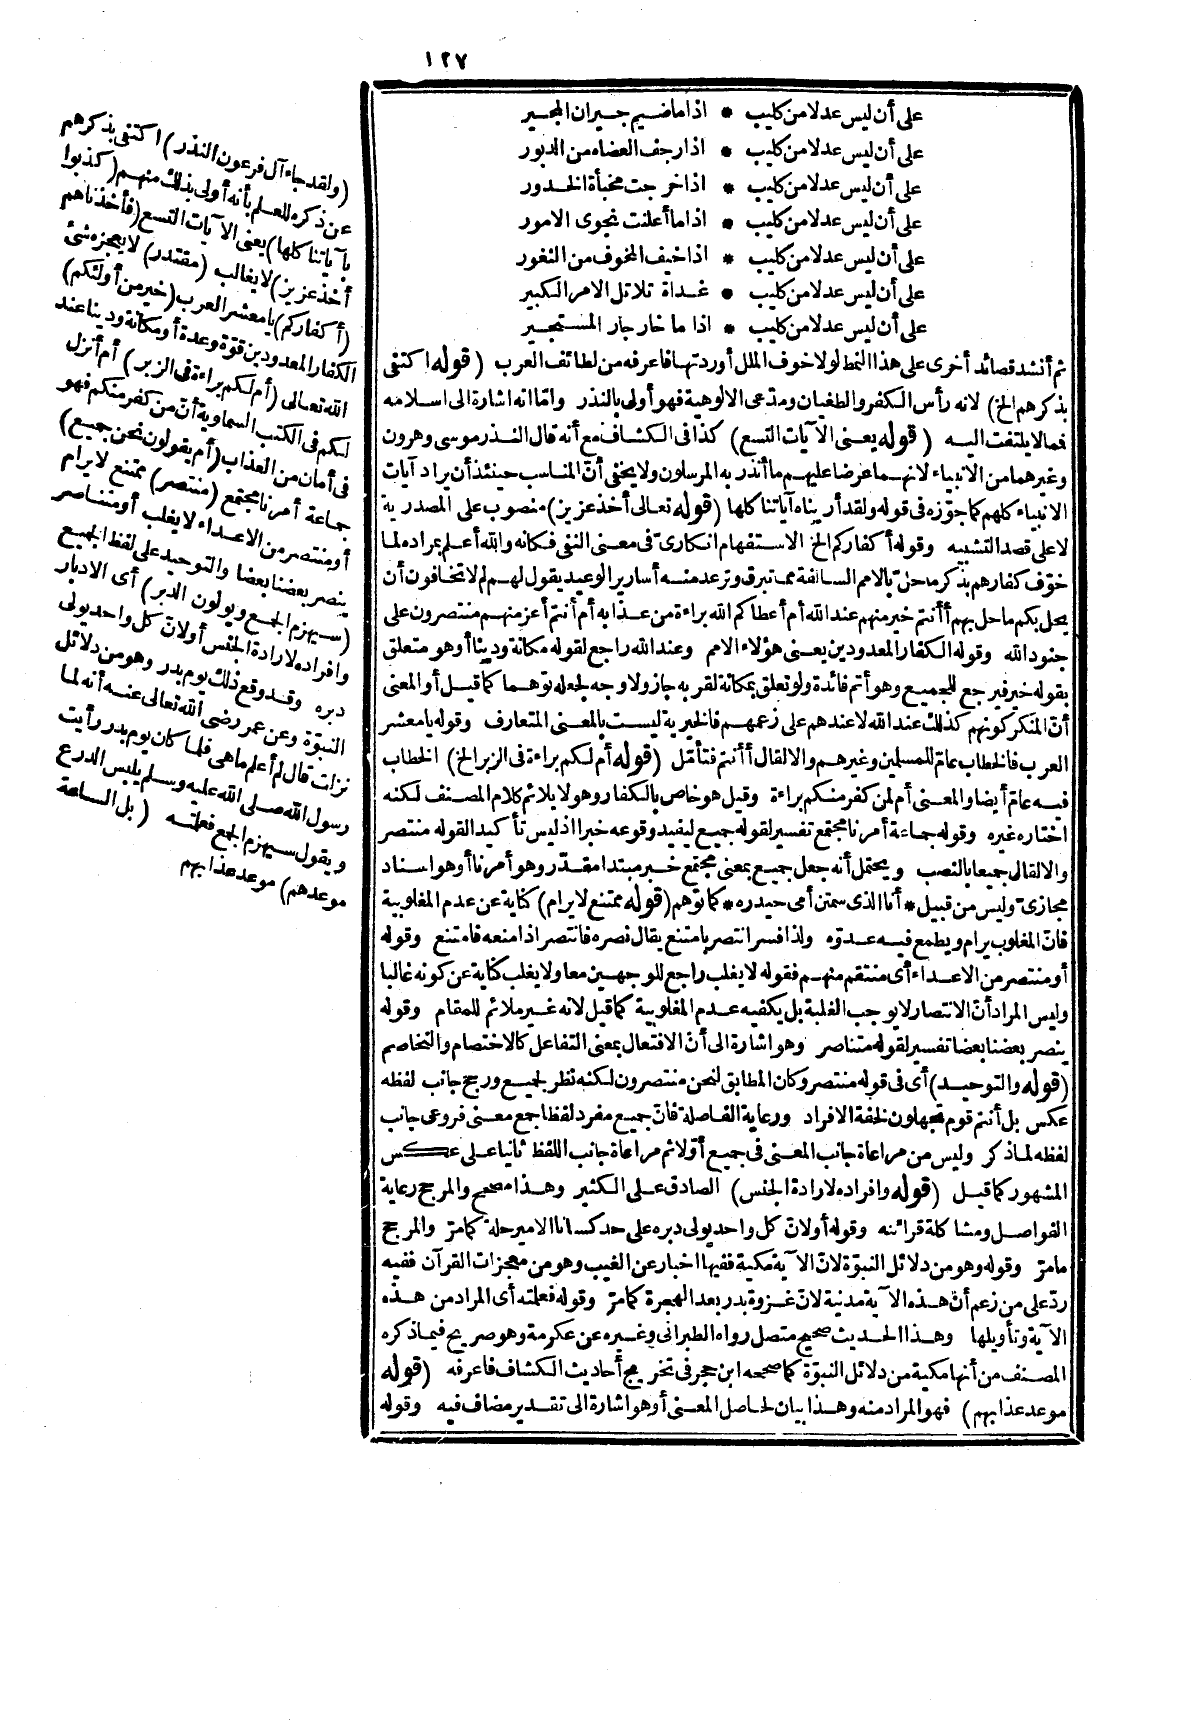 ١٢٧
على أن ليس عدلا من كليب * اذا ما ضيم جيران المجير
على أن ليس عدلا من كليب * اذا رجف العضاه من الدبور
على أن ليس عدلا من كليب * اذا خرجت مخبأة الخدور
على أن ليس عدلا من كليب * اذا ما أعلنت نجوى الامور
على أن ليس عدلا من كليب * اذا خيف المخوف من الثغور
على أن ليس عدلا من كليب * غداة تلاتل الامر الكبير
على أن ليس عدلا من كليب * اذا ما خار جار المستجير
ثم أنشد قصائد أخرى على هذا النمط لولا خوف الملل أوردتها فاعرفه من لطائف العرب (قوله اكتفى
بذكرهم الخ) لانه رأس الكفر والطغيان ومدعى الالوهية فهو أولى بالنذر وامّا انه اشارة الى اسلامه
فمما لا يلتفت اليه (قوله يعنى الآيات التسع) كذا فى الكشاف مع أنه قال النذر موسى وهرون
وغيرهما من الانبياء لانهما عرضا عليهم ما أنذر به المرسلون ولا يخفى أنّ المناسب حينئذ أن يراد آيات
الانبياء كلهم كما جوّزه فى قوله ولقد أريناه آياتنا كلها (قوله تعالى أخذ عزيز) منصوب على المصدرية
لا على قصد التشبيه وقوله أكفاركم الخ الاستفهام انكارىّ فى معنى النفى فكانه والله أعلم بمراده لما
خوّف كفارهم بذكر ما حلّ بالامم السالفة مما تبرق وترعد منه أسارير الوعيد يقول لهم لم لا تخافون أن
يحل بكم ما حل بهم أأنتم خير منهم عند الله أم أعطاكم الله براءة من عذابه أم أنتم أعز منهم منتصرون على
جنود الله وقوله الكفار المعدودين يعنى هؤلاء الامم وعند الله راجع لقوله مكانة ودينا أو هو متعلق
بقوله خير فيرجع للجميع وهو أتم فائدة ولو تعلق بمكانة لقربه جاز ولا وجه لجعله توهما كما قيل أو المعنى
أنّ المنكر كونهم كذلك عند الله لا عندهم على زعمهم فالخيرية ليست بالمعنى المتعارف وقوله يا معشر
العرب فالخطاب عامّ للمسلمين وغيرهم والا لقال أأنتم فتأمّل (قوله أم لكم براءة فى الزبر الخ) الخطاب
فيه عامّ أيضا والمعنى أم لمن كفر منكم براءة وقيل هو خاص بالكفار وهو لا يلائم كلام المصنف لكنه
اختاره غيره وقوله جماعة أمرنا مجتمع تفسير لقوله جميع ليفيد وقوعه خبرا اذ ليس تأكيدا لقوله منتصر
والا لقال جميعا بالنصب ويحتمل أنه جعل جميع بمعنى مجتمع خبر مبتدا مقدّر وهو أمرنا أو هو اسناد
مجازىّ وليس من قبيل * أنا الذى سمتن أمى حيدره * كما توهم (قوله ممتنع لا يرام) كناية عن عدم المغلوبية
فانّ المغلوب يرام ويطمع فيه عدوّه ولذا فسر انتصر بامتنع يقال نصره فانتصر اذا منعه فامتنع وقوله
أو منتصر من الاعداء أى منتقم منهم فقوله لا يغلب راجع للوجهين معا ولا يغلب كناية عن كونه غالبا
وليس المراد أنّ الانتصار لا يوجب الغلبة بل يكفيه عدم المغلوبية كما قيل لانه غير ملائم للمقام وقوله
ينصر بعضنا بعضا تفسير لقوله متناصر وهو اشارة الى أنّ الافتعال بمعنى التفاعل كالاختصام والتخاصم
(قوله والتوحيد) أى فى قوله منتصر وكان المطابق لنحن منتصرون لكنه نظر لجميع ورجح جانب لفظه
عكس بل أنتم قوم تجهلون لخفة الافراد ورعاية الفاصلة فانّ جميع مفرد لفظا جمع معنى فروعى جانب
لفظه لما ذكر وليس من مراعاة جانب المعنى فى جميع أوّلا ثم مراعاة جانب اللفظ ثانيا على عكس
المشهور كما قيل (قوله وافراده لارادة الجنس) الصادق على الكثير وهذا مصحح والمرجح رعاية
الفواصل ومشاكلة قرائنه وقوله أو لانّ كل واحد يولى دبره على حد كسانا الامير حلة كما مرّ والمرجح
ما مرّ وقوله وهو من دلائل النبوّة لانّ الآية مكية ففيها اخبار عن الغيب وهو من معجزات القرآن ففيه
ردّ على من زعم أنّ هذه الآية مدنية لانّ غزوة بدر بعد الهجرة كما مرّ وقوله فعلمته أى المراد من هذه
الآية وتأويلها وهذا الحديث صحيح متصل رواه الطبرانى وغيره عن عكرمة وهو صريح فيما ذكره
المصنف من أنها مكية من دلائل النبوّة كما صححه ابن حجر فى تخريج أحاديث الكشاف فاعرفه (قوله
موعد عذابهم) فهو المراد منه وهذا بيان لحاصل المعنى أو هو اشارة الى تقدير مضاف فيه وقوله
(ولقد جاء آل فرعون النذر) اكتفى بذكرهم
عن ذكره للعلم بأنه أولى بذلك منهم (كذبوا
بآياتنا كلها) يعنى الآيات التسع (فأخذناهم
أخذ عزيز) لا يغالب (مقتدر) لا يعجزه شئ
(أكفاركم) يا معشر العرب (خير من أولئكم)
الكفار المعدودين قوّة وعدة أو مكانة ودينا عند
الله تعالى (أم لكم براءة فى الزبر) أم أنزل
لكم فى الكتب السماوية أنّ من كفر منكم فهو
فى أمان من العذاب (أم يقولون نحن جميع)
جماعة أمرنا مجتمع (منتصر) ممتنع لا يرام
أو منتصر من الاعداء لا يغلب أو متناصر
ينصر بعضنا بعضا والتوحيد على لفظ الجميع
(سيهزم الجمع ويولون الدبر) أى الادبار
وافراده لارادة الجنس أو لانّ كل واحد يولى
دبره وقد وقع ذلك يوم بدر وهو من دلائل
النبوّة وعن عمر رضى الله تعالى عنه أنه لما
نزلت قال لم أعلم ما هى فلما كان يوم بدر رأيت
رسول الله صلى الله عليه وسلم يلبس الدرع
ويقول سيهزم الجمع فعلمته (بل الساعة
موعدهم) موعد عذابهم